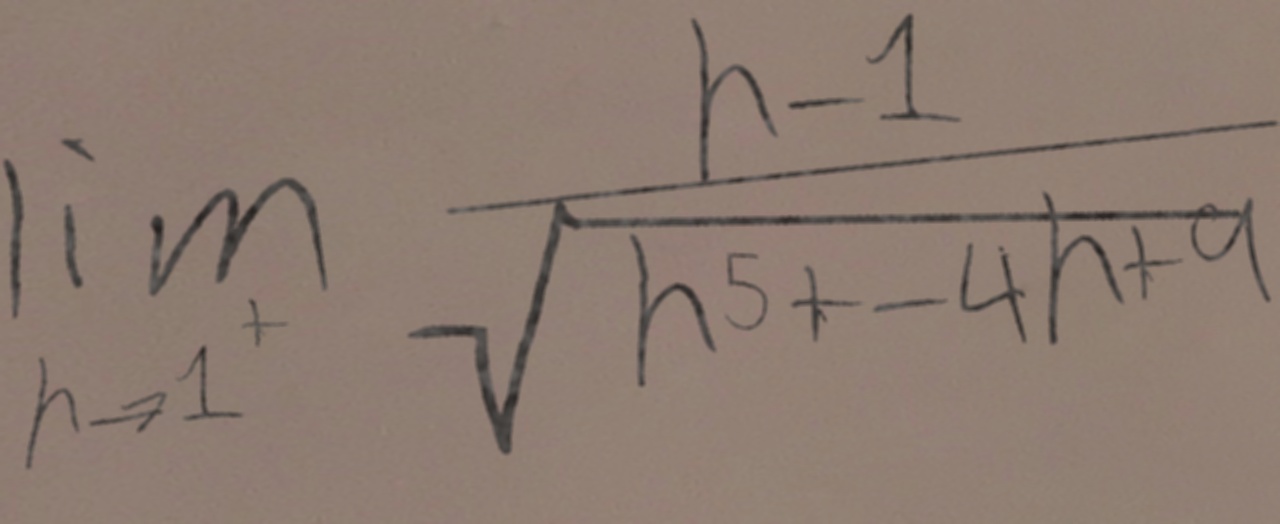 \lim_{h \to 1^+} \frac{h-1}{\sqrt{h^5+-4h+9}}